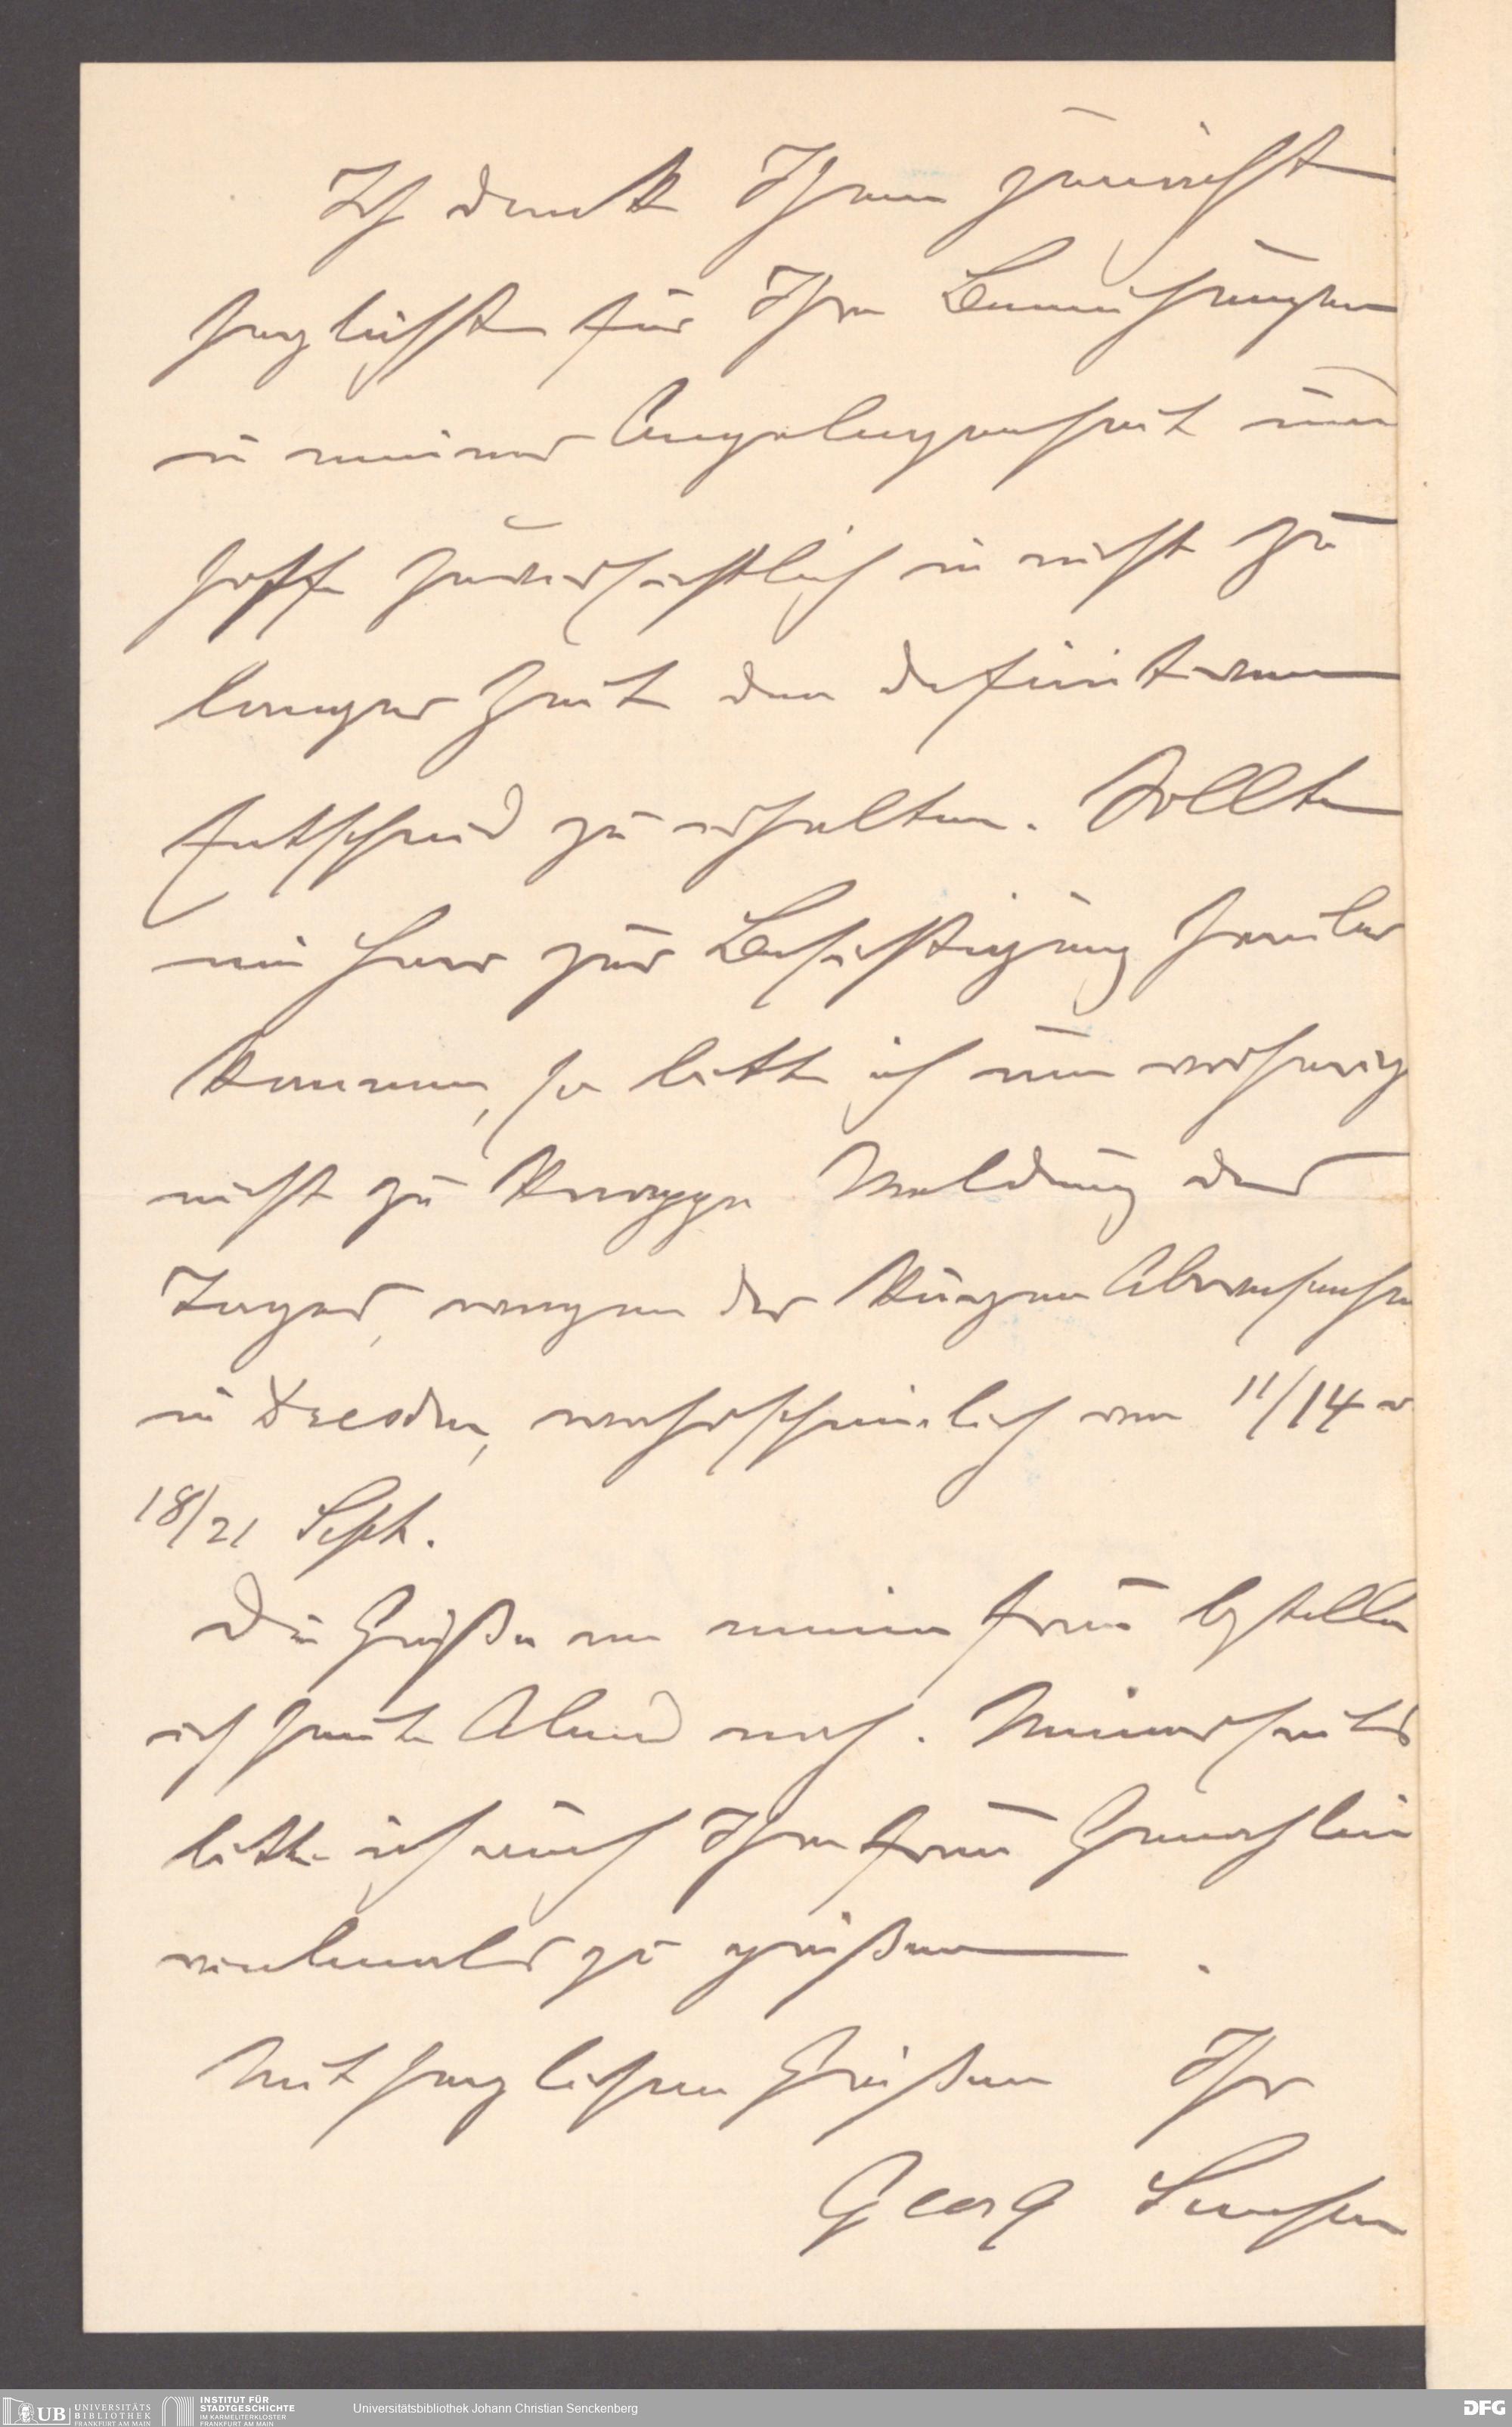 Ich danke Ihnen zunächst
herzlichst für Ihre Bemühungen
in meiner Angelegenheit und
hoffe zuversichtlich in nicht zu
langer Zeit den definitiven
Entscheid zu erhalten. Sollte
ein Herr zur Besichtigung
kommen, so bitte ich um vorherige
nicht zu knappe Meldung des
Tages, wegen der kurzen Abwesenheit
in Dresden, wahrscheinlich von 11/14 –
18/21 Sept.
Die Grüße an meine Frau bestelle
ich heute Abend noch. Meinerseits
bitte ich auch Ihre Frau Gemahlin
vielmals zu grüßen.
Mit herzlichen Grüßen Ihr
Georg
UB UNIVERSITÄTS
BIBLIOTHEK
FRANKFURT AM MAIN
INSTITUT FÜR
STADTGESCHICHTE
IM KARMELITERKLOSTER
FRANKFURT AM MAIN
Universitätsbibliothek Johann Christian Senckenberg
DFG